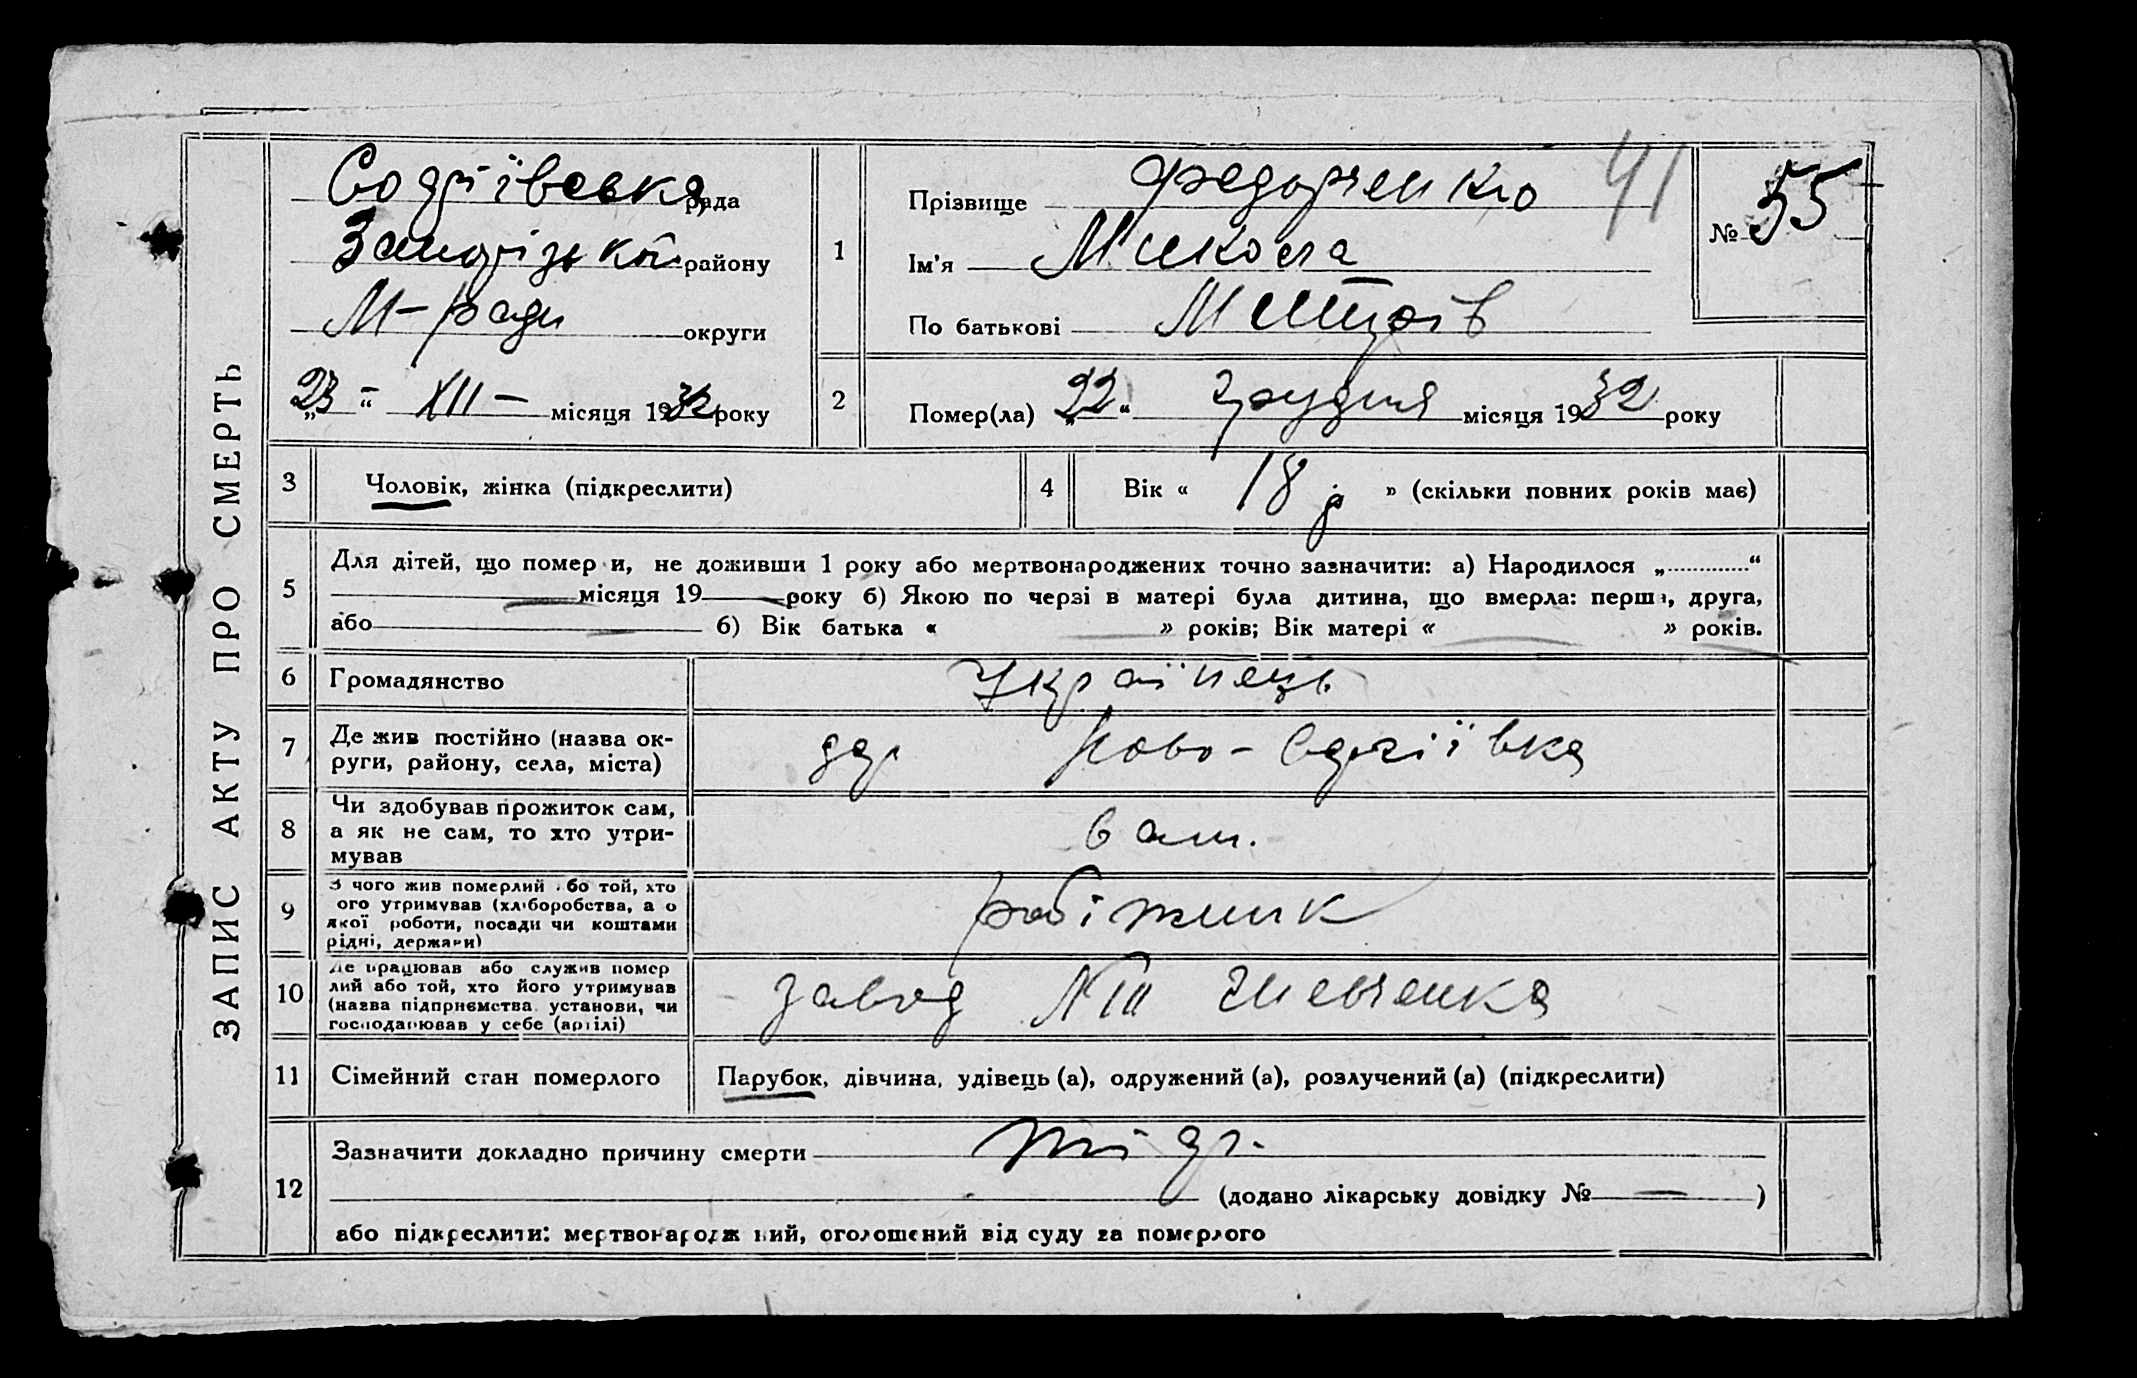 ЗАПИС АКТУ ПРО СМЕРТЬ
рада
району
М-ради округи
„23“ XII — місяця 1932 року
1
Прізвище Федорченко 41
Ім'я Микола
По батькові
№ 55
2
Помер(ла) „22“ грудня місяця 1932 року
3 Чоловік, жінка (підкреслити)
4 Вік « 18 р » (скільки повних років має)
5
Для дітей, що помер и, не доживши 1 року або мертвонароджених точно зазначити: а) Народилося „.............“
місяця 19 року б) Якою по черзі в матері була дитина, що вмерла: перша, друга,
або б) Вік батька « » років; Вік матері « » років.
6 Громадянство Українець
7 Де жив постійно (назва ок-
руги, району, села, міста)
Ново-Сергіївка
8 Чи здобував прожиток сам,
а як не сам, то хто утри-
мував
сам.
9 З чого жив померлий або той, хто
ого утримував (хліборобства, а о
якої роботи, посади чи коштами
рідні, держави)
робітник
10 Де працював або служив помер
лий або той, хто його утримував
(назва підприємства, установи, чи
господарював у себе (артілі)
завод Шевченка
11 Сімейний стан померлого Парубок, дівчина, удівець (а), одружений (а), розлучений (а) (підкреслити)
12
Зазначити докладно причину смерти
(додано лікарську довідку № — )
або підкреслити: мертвонародж ний, оголошений від суду за померлого